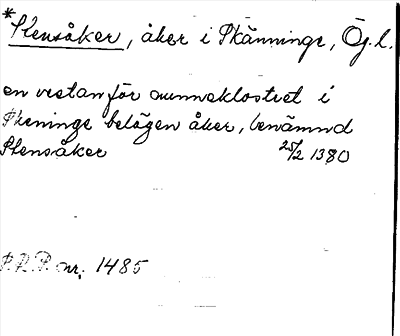 *Stensåker, åker i Skänninge, Ög. l.
en vestan för nunneklostret i
Skeninge belägen åker, benämnd
Stensåker 25/2 1380
P.R.P. nr. 1485